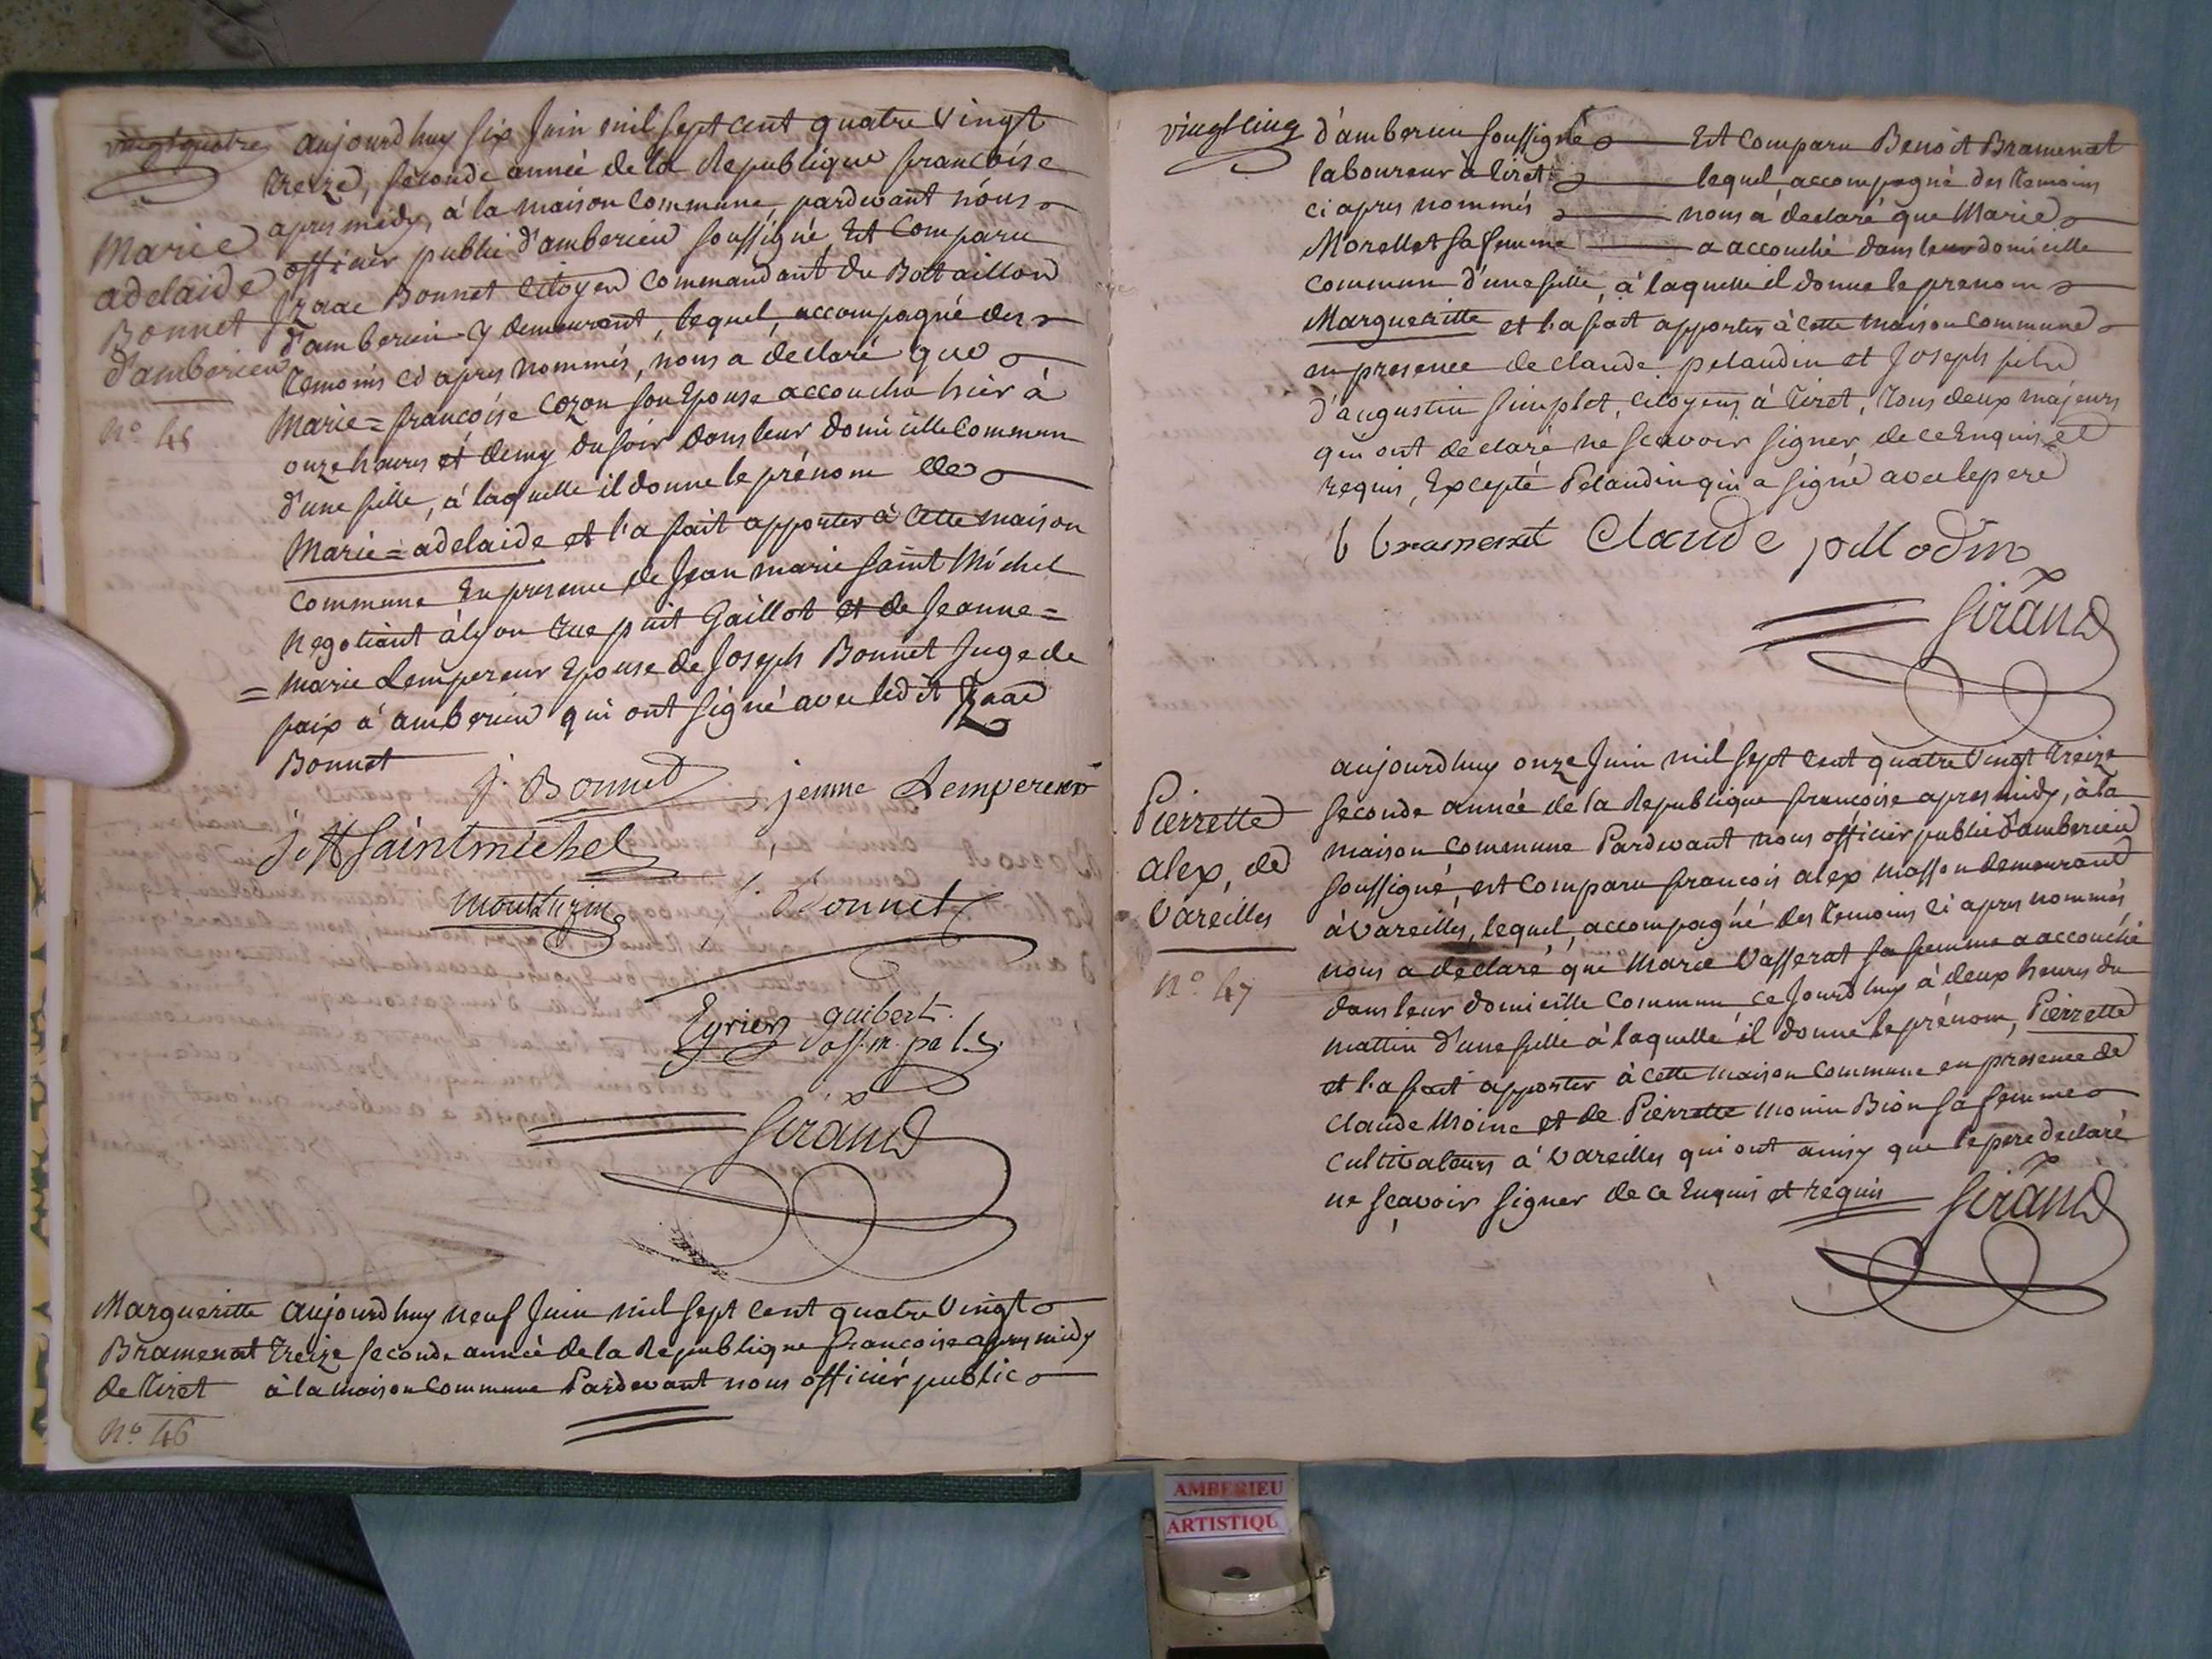 vingt quatre
Marie
adelaide
Bonnet
d'amberieu
n.° 45
aujourd huy six Juin mil sept cent quatre Vingt
treize, seconde année de la Republique francoise
apres midy, à la maison Commune, pardevant nous
officier public d'amberieu soussigné, Est Comparu
Izaac Bonnet Citoyen Commandant du Battaillon
d'amberieu y demeurant, lequel, accompagné des
temoins ci apres nommés, nous a declaré que
Marie=francoise Cozon son Epouse accoucha hier à
onze heures et demy du soir dans leur domicille Commun
d'une fille, à laquelle il donne le prénom de
Marie=adelaide et l'a fait apporter à Cette maison
Commune En presence de Jean marie Saint Michel
Negotiant à lyon rue puit Gaillot et de Jeanne=
=marie Lempereur Epouse de Joseph Bonnet Juge de
paix à amberieu qui ont signé avec ledit Izaac
Bonnet
J. Bonnet jenne Lempereur
J M Saintmichel
J. Bonnet
guibert
off. m. pal.
Sirand
Margueritte
Bramenat
de Tiret
n.° 46
aujourd huy neuf Juin mil sept Cent quatre Vingt
Treize seconde année de la Republique francoise apres midy
à la maison Commune Pardevant nous officier public
vingt cinq
d'amberieu soussigné Est Comparu Benoit Bramenat
laboureur à tiret lequel accompagné des temoins
ci apres nommés nous a declaré que Marie
Morellet sa femme a accouché dans leur domicille
commun d'une fille, à laquelle il donne le prenom
Margueritte et l'a fait apporter à cette maison Commune
en presence de claude pelaudin et Joseph fils
d'augustin Simplet, Citoyens à Tiret, tous deux majeurs
qui ont declaré ne scavoir signer, de ce Enquis et
requis, Excepté Pelaudin qui a signé avec le pere
b bramenat Claude pillodin
Sirand
Pierrette
alex, de
Vareilles
n.° 47
aujourd huy onze Juin mil sept Cent quatre Vingt treize
seconde année de la Republique francoise apres midy, à la
maison commune Pardevant nous officier public d'amberieu
soussigné, est Comparu francois alex masson demeurant
à Vareilles, lequel, accompagné des temoins ci apres nommés
nous a declaré que Marie Vasserat sa femme a accouché
dans leur domicille Commun, ce Jourd huy à deux heures du
mattin d'une fille à laquelle il donne le prénom, Pierrette
et l'a fait apporter à cette maison Commune en presence de
Claude Moine et de Pierrette Monin Bion sa femme
Cultivateurs à Vareilles qui ont ainsy que le pere declaré
ne sçavoir signer de ce Enquis et requis
Sirand
AMBERIEU
ARTISTIQU